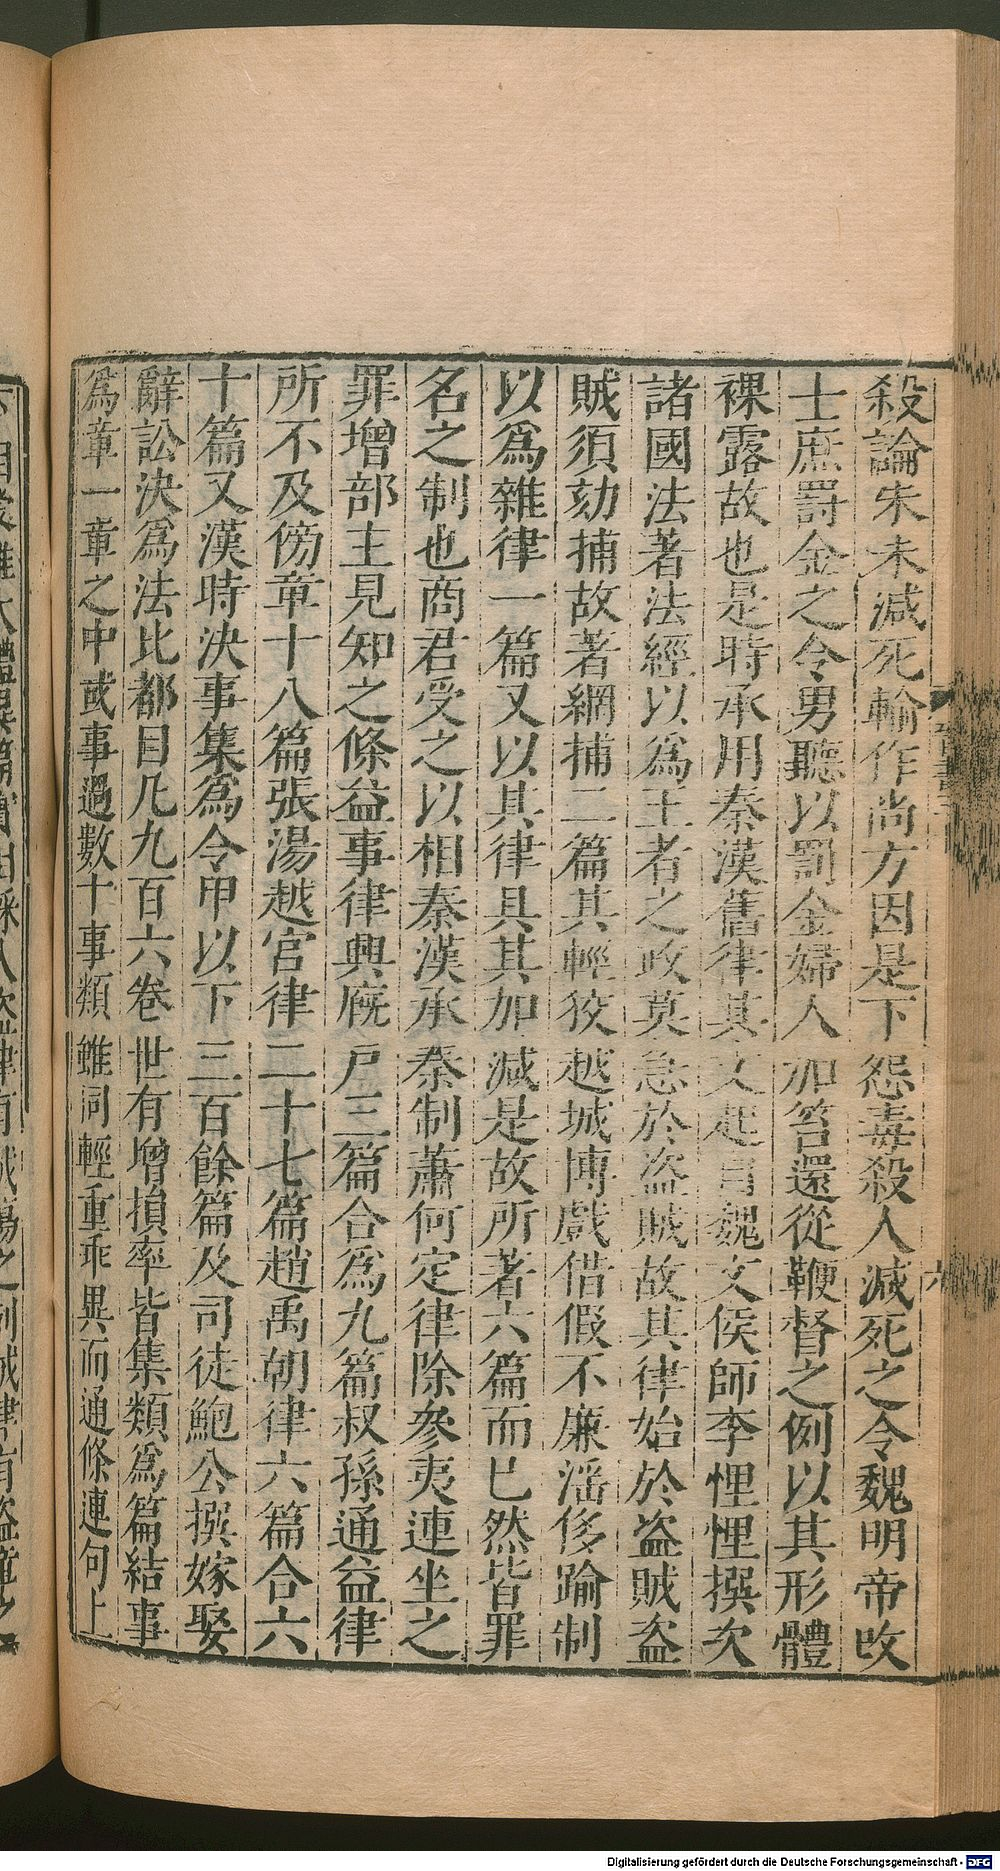 殺論朱未減死輸作尚方因是下怨毒殺人減死之令魏明帝改
士庶罰金之令男聽以罰金婦人加笞還從鞭督之例以其形體
裸露故也是時承用秦漢舊律其文起自魏文侯師李悝悝撰次
諸國法著法經以爲王者之政莫急於盜賊故其律始於盜賊盜
賊須劾捕故著網捕二篇其輕狡越城博戲借假不廉淫侈踰制
以爲雜律一篇又以其律具其加減是故所著六篇而已然皆罪
名之制也商君受之以相秦漢承秦制蕭何定律除參夷連坐之
罪增部主見知之條益事律興廐戶三篇合爲九篇叔孫通益律
所不及傍章十八篇張湯越宮律二十七篇趙禹朝律六篇合六
十篇又漢時決事集爲令甲以下三百餘篇及司徒鮑公撰嫁娶
辭訟決爲法比都目凡九百六卷世有增損率皆集類爲篇結事
爲章一章之中或事過數十事類雖同輕重乖異而通條連句上
Digitalisierung gefördert durch die Deutsche Forschungsgemeinschaft - DFG